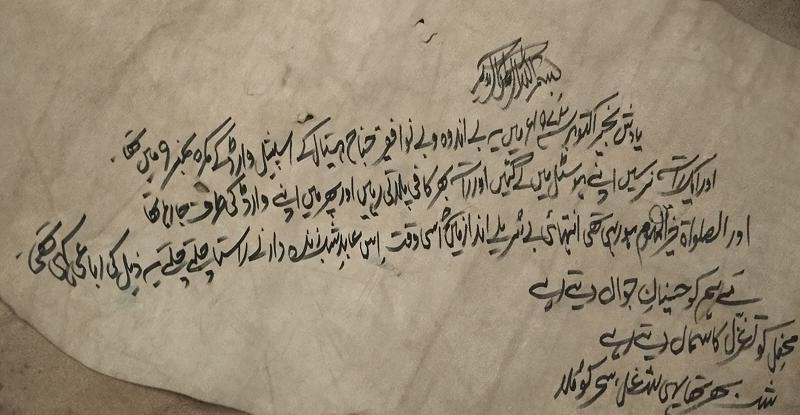 بسم اللہ الرحمن الرحیم
یادش بخیر اکتوبر ۱۹۶۷ء میں یہ بے اندوہ و بے نوا فقیر جناح ہسپتال کے اسپیشل وارڈ کے کمرہ نمبر ۹ میں تھا
اور ایک رات نرسیں اپنے ہوسٹل میں لے گئیں اور رات بھر کافی پلاتی رہیں اور پھر میں اپنے وارڈ کی طرف جا رہا تھا
اور الصلواۃ خیر من النوم ہو رہی تھی انتہائی بے سُریلے انداز میں اُسی وقت اِس عابدِ شب زندہ دار نے راستہ چلتے چلتے یہ ذیل کی رباعی کہی تھی
تے ہم کو حسینانِ جواں دیتے رہے
محفل کو تغزّل کا سماں دیتے رہے
شب بھر تھا یہی شغل، سحر کو